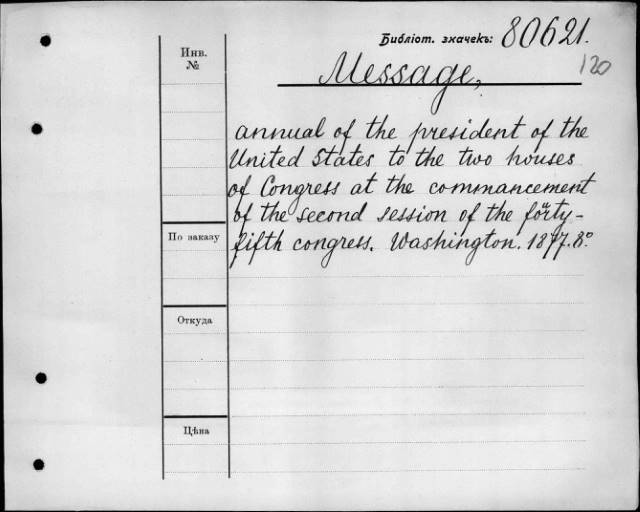 Библіот. значекъ: 80621.
120
Инв.
№
Message,
annual of the president of the
United States to the two houses
of Congress at the commancement
of the second session of the forty-
fifth congress. Washington. 1877. 8º
По заказу
Откуда
Цѣна